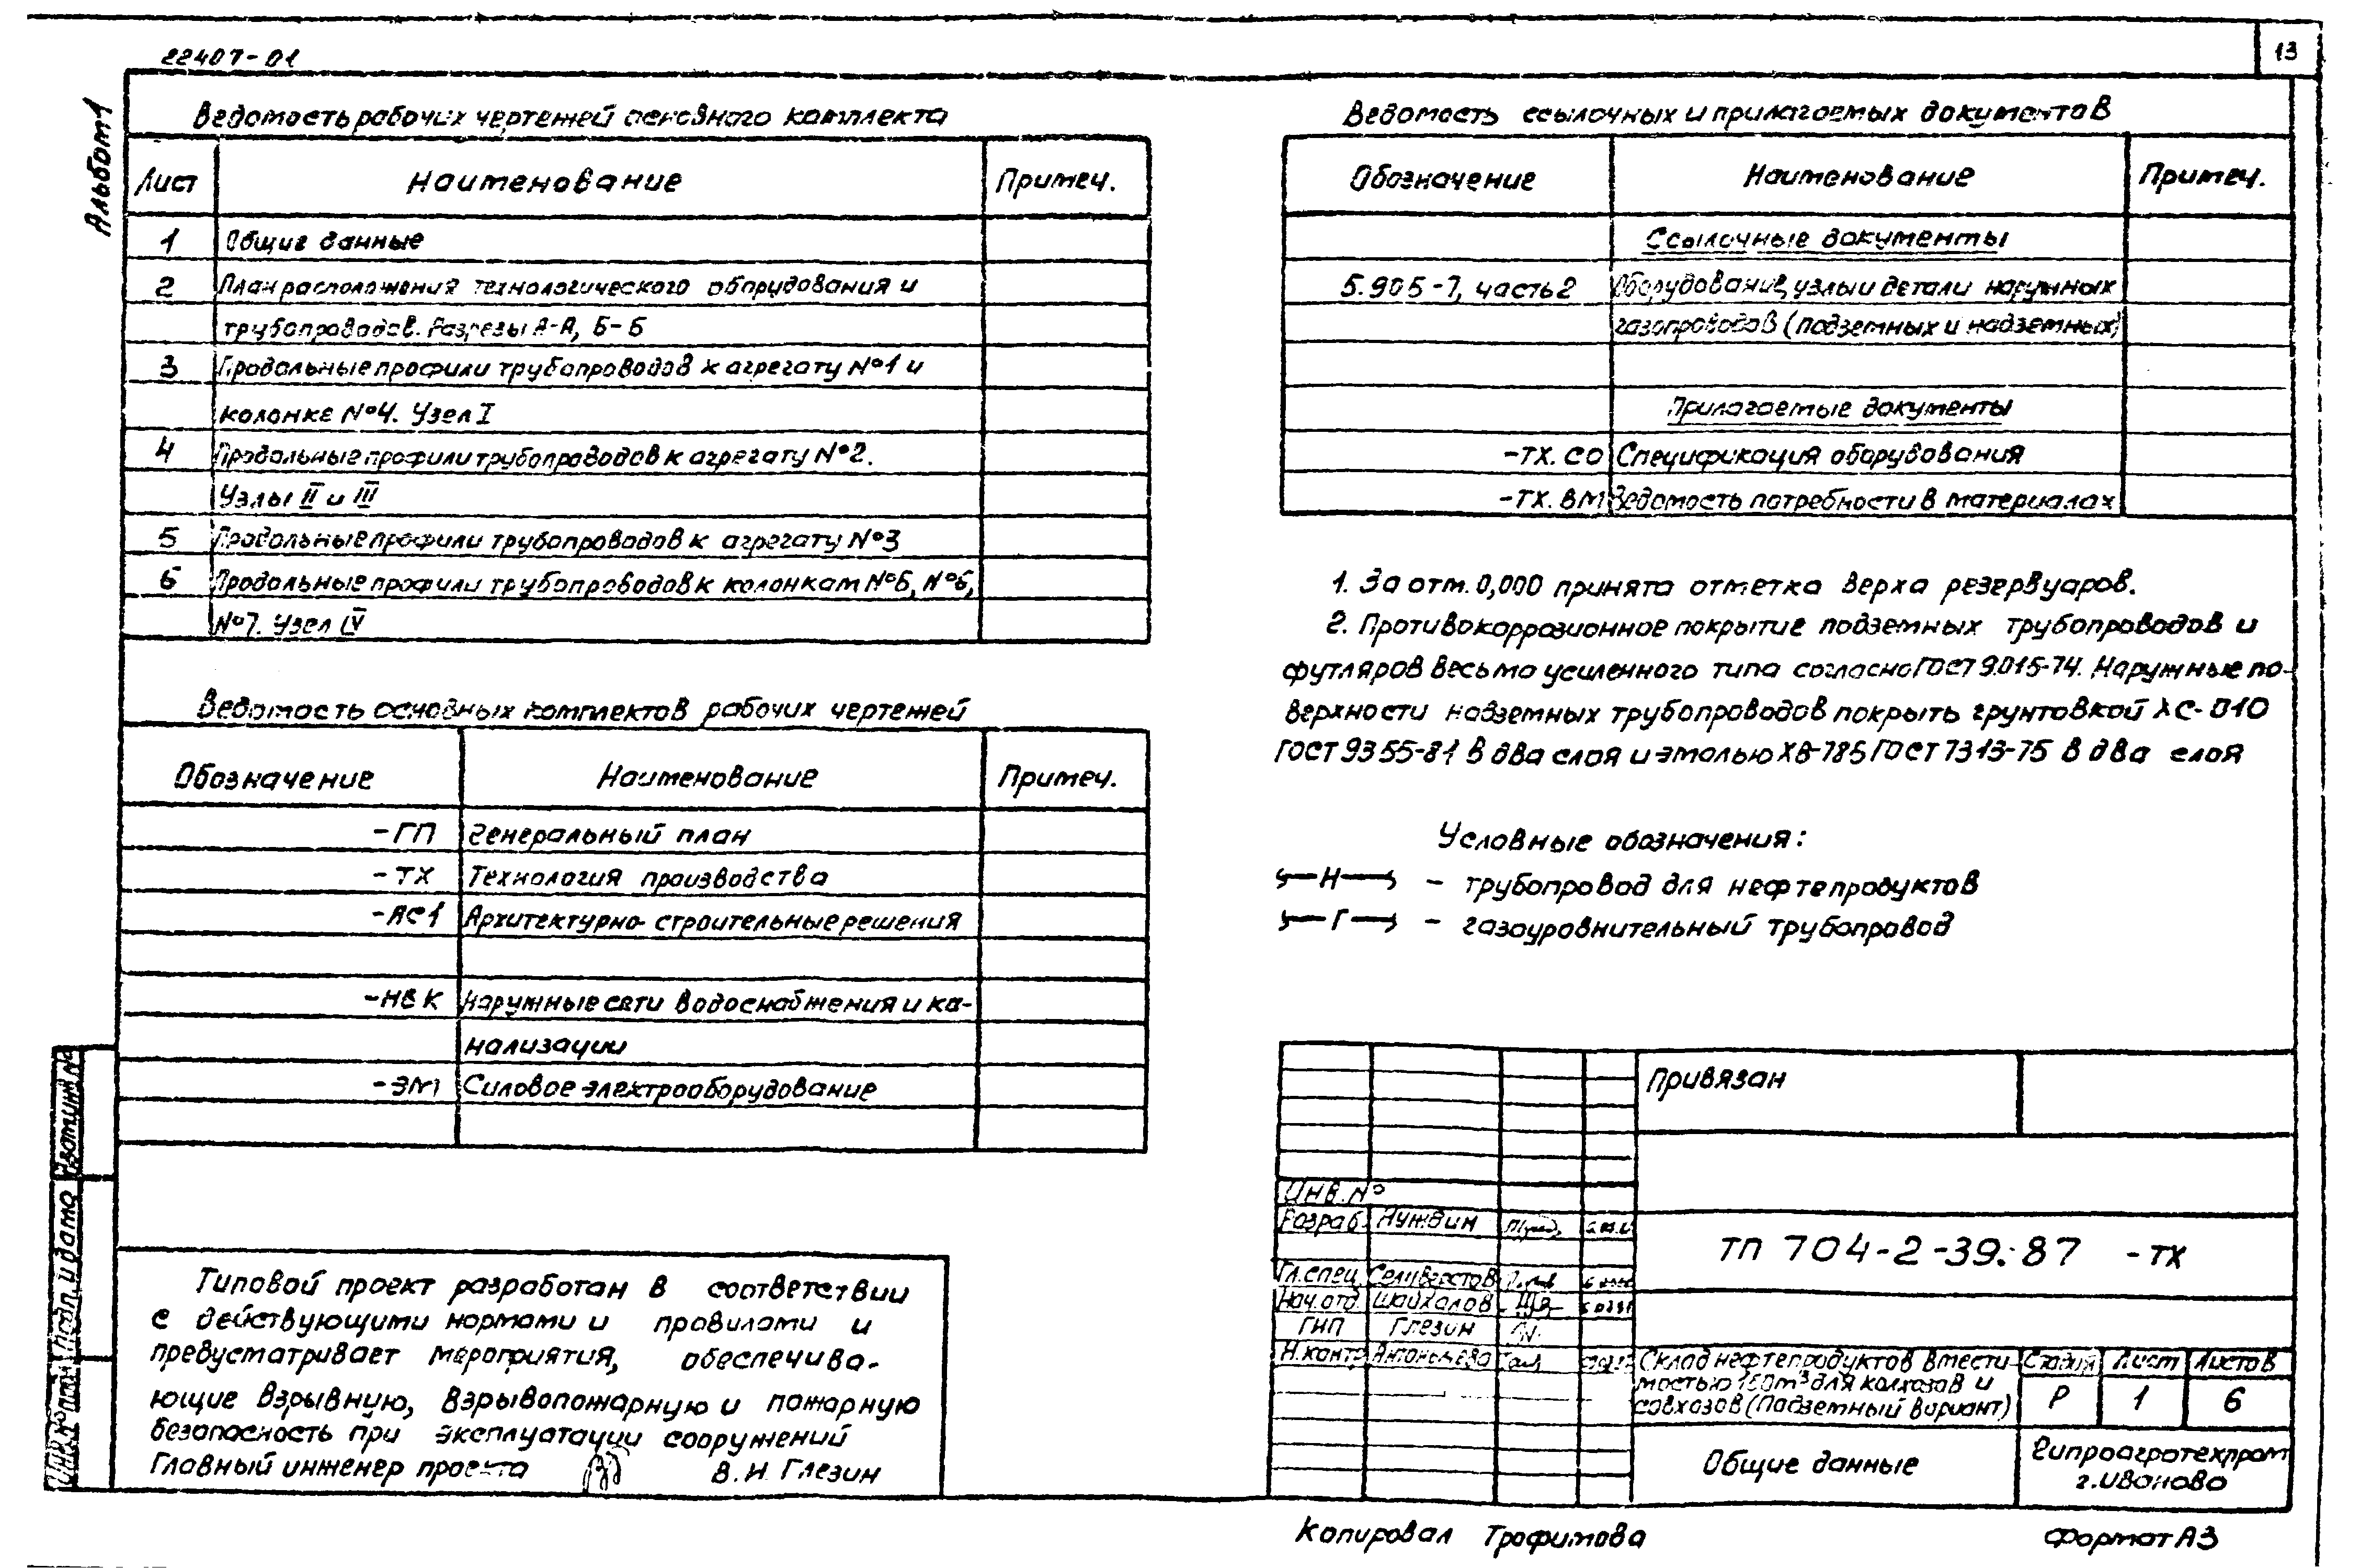 22407-01
13
Альбом 1
Ведомость рабочих чертежей основного комплекта
Лист Наименование Примеч.
1 Общие данные
2 План расположения технологического оборудования и
трубопроводов. Разрезы А-А, Б-Б
3 Продольные профили трубопроводов к агрегату №1 и
колонке №4. Узел I
4 Продольные профили трубопроводов к агрегату №2.
Узлы II и III
5 Продольные профили трубопроводов к агрегату №3
6 Продольные профили трубопроводов к колонкам №5, №6,
№7. Узел IV
Ведомость основных комплектов рабочих чертежей
Обозначение Наименование Примеч.
-ГП Генеральный план
-ТХ Технология производства
-АС1 Архитектурно-строительные решения
-НВК Наружные сети водоснабжения и ка-
нализации
-ЭМ Силовое электрооборудование
Типовой проект разработан в соответствии
с действующими нормами и правилами и
предусматривает мероприятия, обеспечива-
ющие взрывную, взрывопожарную и пожарную
безопасность при эксплуатации сооружений
Главный инженер проекта В.И. Глезин
Ведомость ссылочных и прилагаемых документов
Обозначение Наименование Примеч.
Ссылочные документы
5.905-7, часть 2 Оборудование, узлы и детали наружных
газопроводов (подземных и надземных)
Прилагаемые документы
-ТХ.СО Спецификация оборудования
-ТХ.ВМ Ведомость потребности в материалах
1. За отм. 0,000 принята отметка верха резервуаров.
2. Противокоррозионное покрытие подземных трубопроводов и
футляров весьма усиленного типа согласно ГОСТ 9.015-74. Наружные по-
верхности надземных трубопроводов покрыть грунтовкой ХС-010
ГОСТ 9355-81 в два слоя и эмалью ХВ-785 ГОСТ 7313-75 в два слоя
Условные обозначения:
Н - трубопровод для нефтепродуктов
Г - газоуравнительный трубопровод
Привязан
Инв. №
Разраб. Нуждин
Гл.спец. Селиверстов
Нач.отд. Шайхалов
ГИП Глезин
Н.контр.
ТП 704-2-39.87 -ТХ
Склад нефтепродуктов вмести-
мостью 160м³ для колхозов и
совхозов (Подземный вариант)
Стадия Лист Листов
Р 1 6
Общие данные
Гипроагротехпром
г. Иваново
Взам.инв.№
Подп. и дата
Инв.№ подл.
Копировал Трофимова
Формат А3